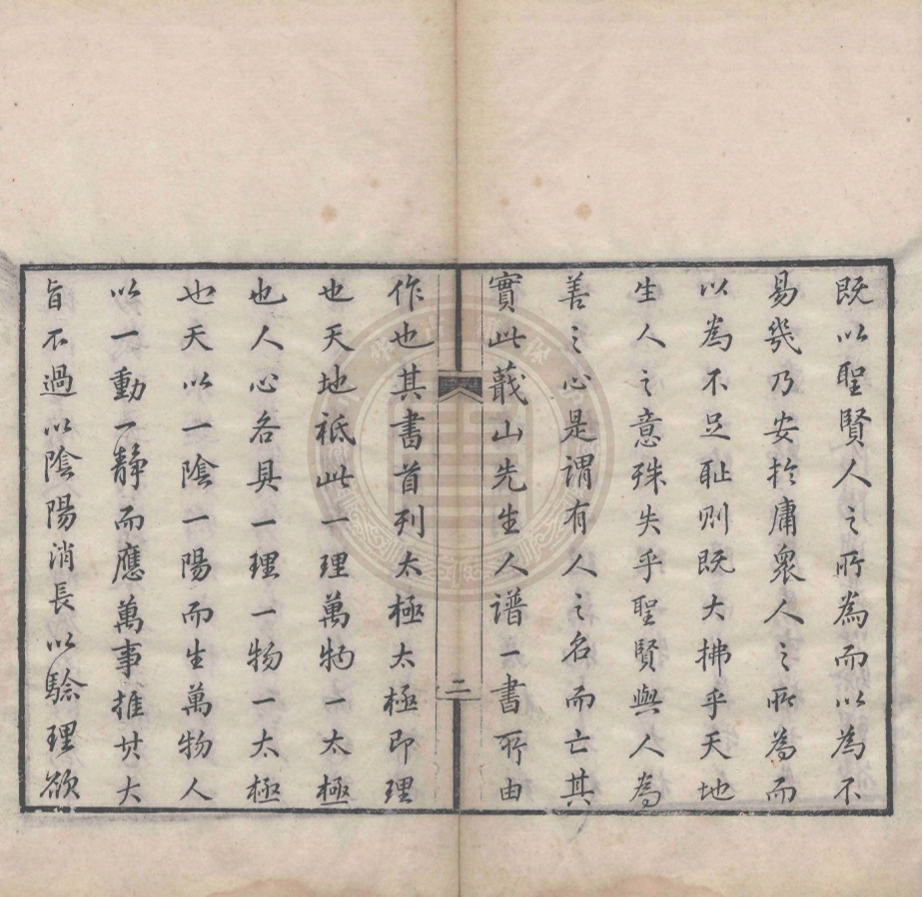 既以聖賢人之所為而以為不
易幾乃安於庸衆人之所為而
以為不足恥則既大拂乎天地
生人之意殊失乎聖賢與人為
善之心是謂有人之名而亡其
實此蕺山先生人譜一書所由
二
作也其書首列太極太極即理
也天地祗此一理萬物一太極
也人心各具一理一物一太極
也天以一陰一陽而生萬物人
以一動一靜而應萬事推其大
旨不過以陰陽消長以驗理欲